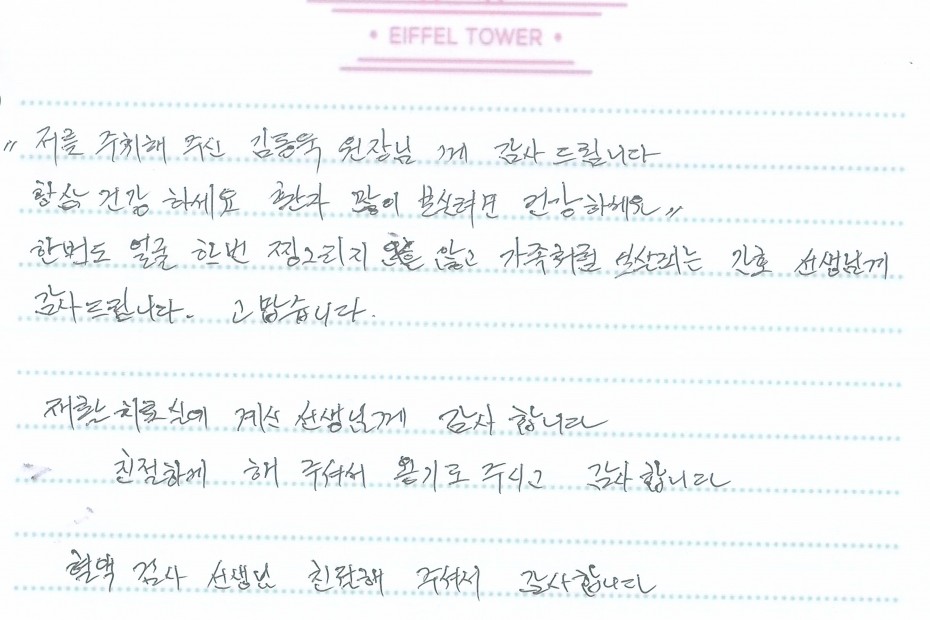 • EIFFEL TOWER •
〃 저를 주치해 주신 김동욱 원장님 께 감사 드립니다
항상 건강 하세요 환자 많이 보실려면 건강하세요 〃
한번도 얼굴 한번 찡그리지 않고 가족처럼 보살피는 간호 선생님께
감사드립니다. 고맙습니다.
재활 치료실에 계신 선생님께 감사 합니다
친절하게 해 주셔서 용기도 주시고 감사 합니다
혈액 검사 선생님 친절해 주셔서 감사합니다